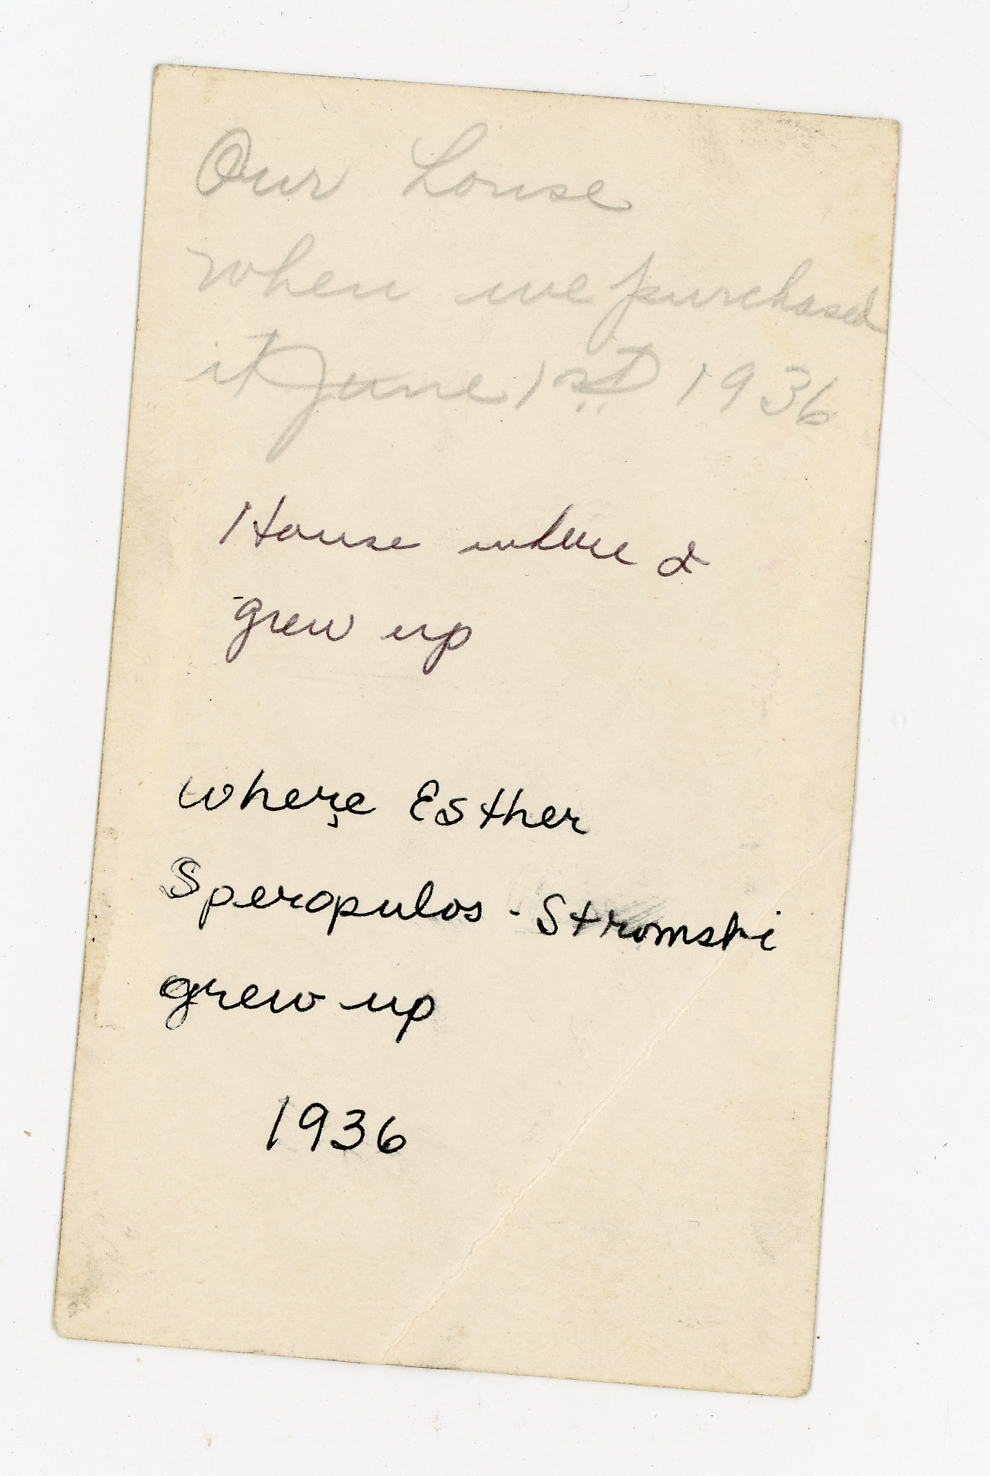 Our house
when we purchased
it June 1st 1936
House where I
grew up
where Esther
Speropulos - Stromski
grew up
1936